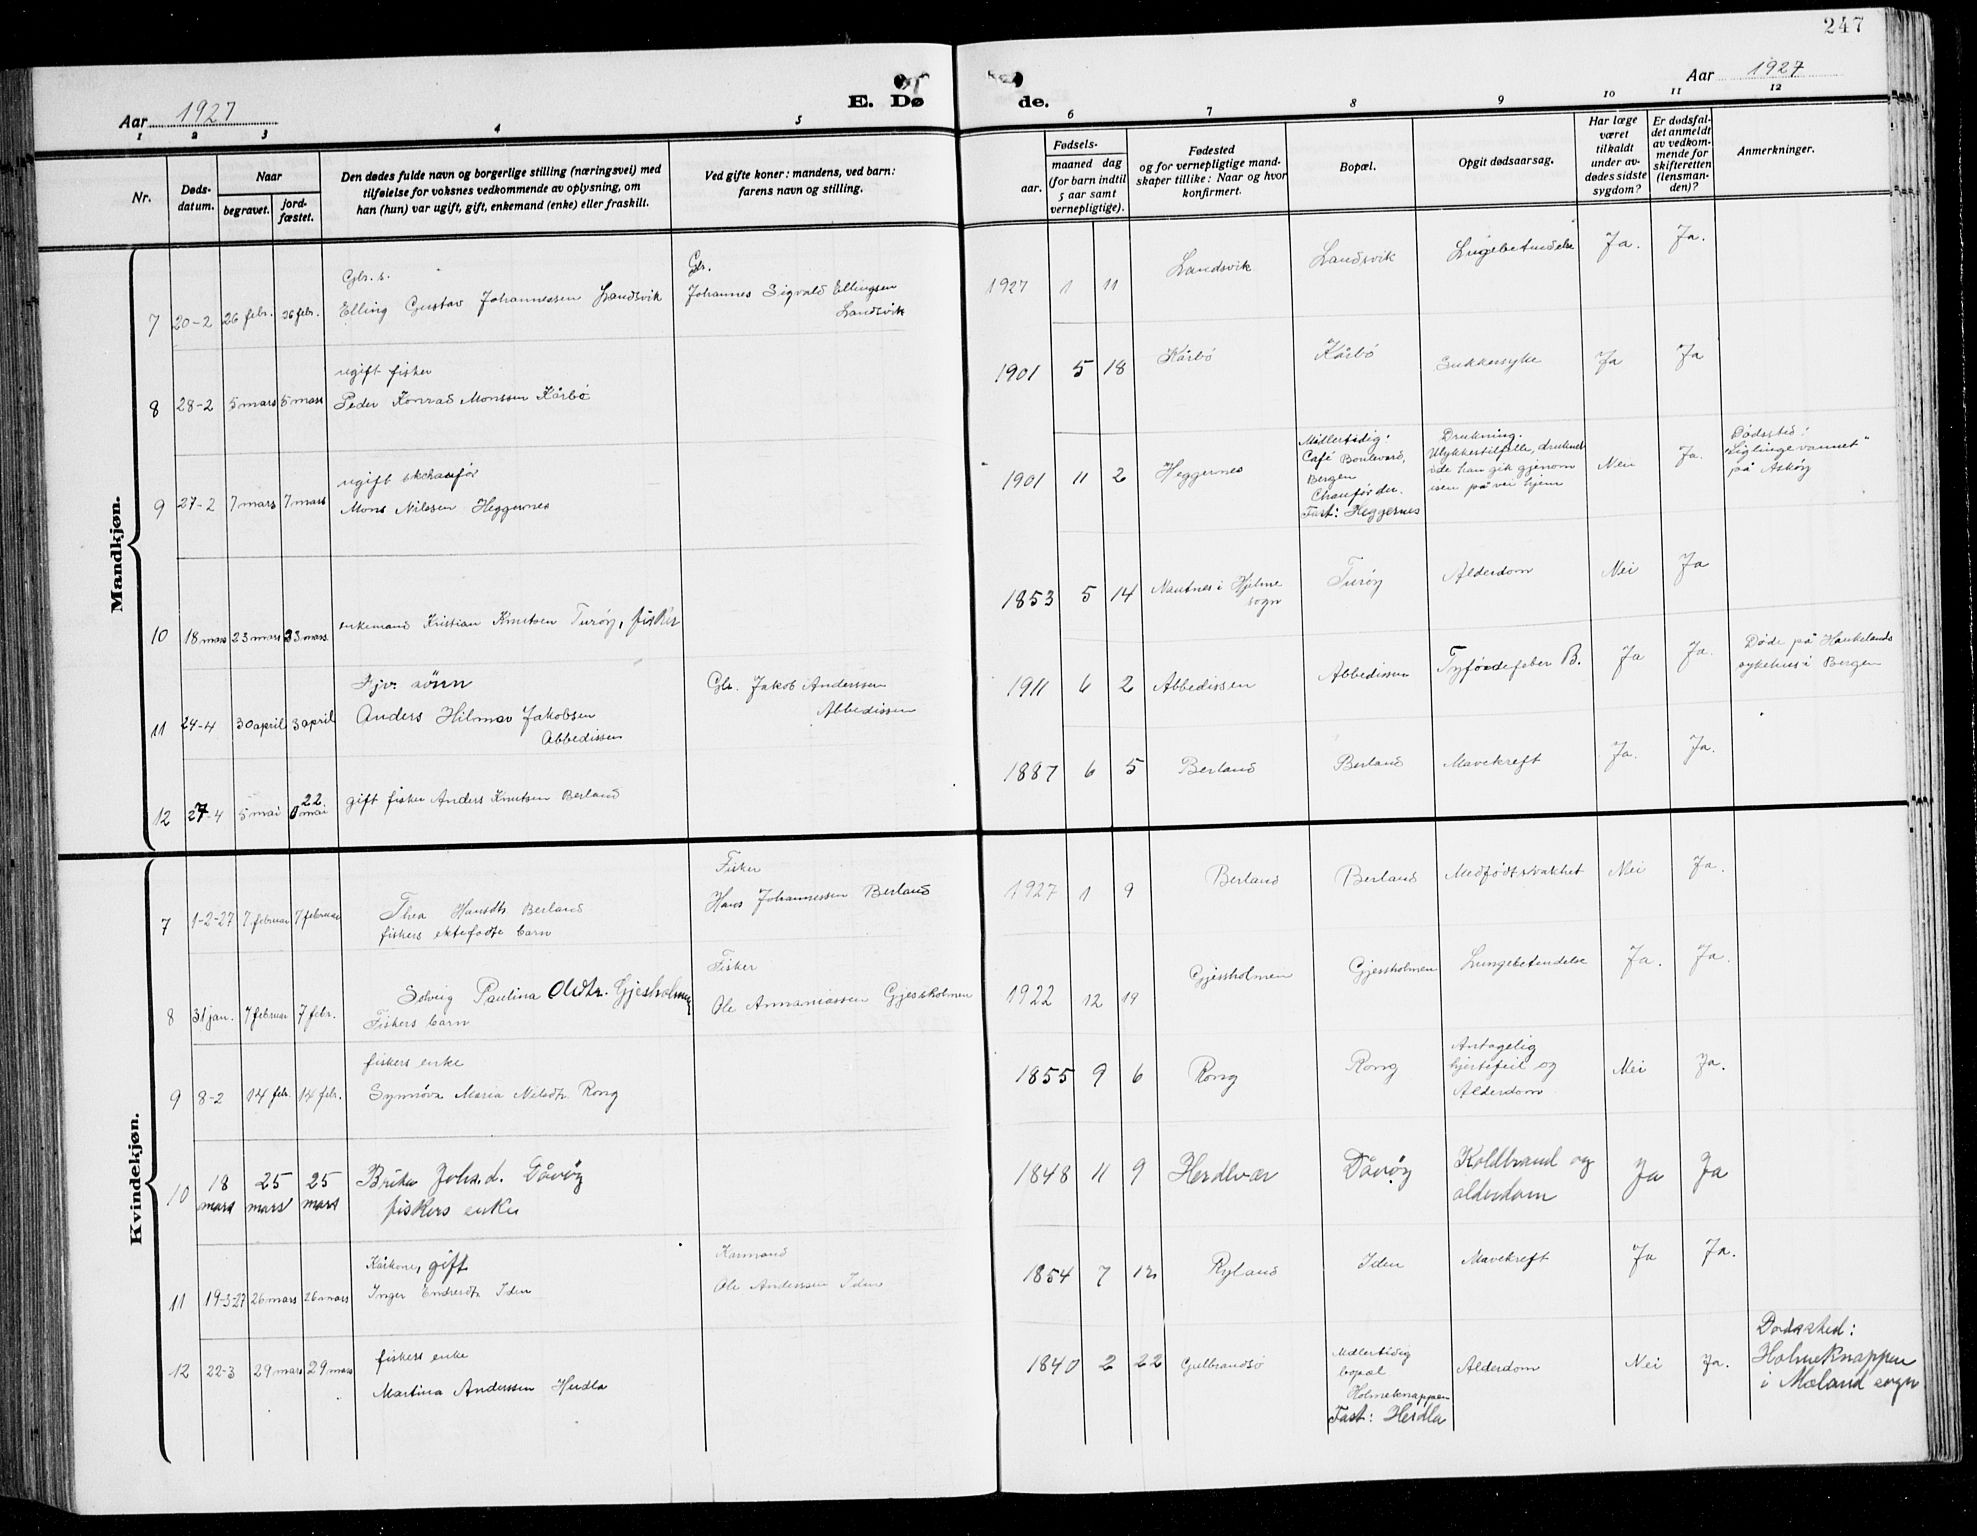 247
Aar 1927
E. Døde.
Aar 1927
1 2 3 4 5 6 7 8 9 10 11 12
Nr.
Døds-
datum.
Naar
begravet.
jord-
fæstet.
Den dødes fulde navn og borgerlige stilling (næringsvei) med
tilføielse for voksnes vedkommende av oplysning, om
han (hun) var ugift, gift, enkemand (enke) eller fraskilt.
Ved gifte koner: mandens, ved barn:
farens navn og stilling.
Fødsels-
aar.
maaned dag
(for barn indtil
5 aar samt
vernepligtige).
Fødested
og for vernepligtige mand-
skaper tillike: Naar og hvor
konfirmert.
Bopæl.
Opgit dødsaarsag.
Har læge
været
tilkaldt
under av-
dødes sidste
sygdom?
Er dødsfal-
det anmeldt
av vedkom-
mende for
skifteretten
(lensman-
den)?
Anmerkninger.
Mandkjøn.
7 20-2 26 febr. 26 febr.
Gbr. s.
Elling Gustav Johannessen Landsvik
Gbr.
Johannes Sigvald Ellingsen
Landsvik
1927 1 11 Landsvik Landsvik Lungebetendelse Ja. Ja.
8 28-2 5 mars 5 mars
ugift fisker
Peder Konrad Monssen Kårbø
1901 5 18 Kårbø Kårbø Sukkersyke Ja Ja
9 27-2 7 mars 7 mars
ugift
Mons Nilssen Heggernes
1901 11 2 Heggernes
Midlertidig:
Café Boulevard,
Bergen
Chauffør der.
Fast: Heggernes
Drukning.
Ulykkestilfelle, druknet
ide han gik gjenom
isen på vei hjem
Nei Ja.
Dødssted:
på Askøy
10 18 mars 23 mars 23 mars
enkemand Kristian Knutsen Turøy, fisker
1853 5 14 Nautnes i Hjelme
sogn
Turøy Alderdom Nei Ja
11 24-4 30 april 3 april
Gjv. sønn
Anders Hilmar Jakobsen
Abbedissen
Gbr. Jakob Anderssen
Abbedissen
1911 6 2 Abbedissen Abbedissen Tyfoidefeber B. Ja Ja.
Døde på Haukelands
sykehus i Bergen
12 27-4 5 mai 22. mai
gift fisker Anders Knutsen Berland
1887 6 5 Berland Berland Mavekreft Ja. Ja.
Kvindekjøn.
7 1-2-27 7 februar 7 februar
Thea Hansdtr Berland
fiskers ektefødte barn
Fisker
Hans Johannessen Berland
1927 1 9 Berland Berland Medfødt svakhet Nei Ja.
8 31 jan. 7 februar 7 febr.
Solveig Paulina Oldtr. Gjesholmen
Fiskers barn
Fisker
Ole Annaniassen Gjessholmen
1922 12 19 Gjessholmen Gjessholmen Lungebetendelse Ja. Ja.
9 8-2 14 febr. 14 febr.
fiskers enke
Synnøva Maria Nilsdtr. Rong
1855 9 6 Rong Rong
Antagelig
hjertefeil og
Alderdom
Nei Ja.
10 18 mars 25 mars 25 mars
Brita Johs.d. Dåvøy
fiskers enke
1848 11 9 Herdlevær Dåvøy
Koldbrand og
alderdom
Ja Ja
11 19-3-27 26 mars 26 mars
Kårkone, gift
Inger Endresdtr Iden
Kårmand
Ole Anderssen Iden
1854 7 12 Ryland Iden Mavekreft Ja Ja.
12 22-3 29 mars 29 mars
fiskers enke
Martina Anderssen Herdla
1840 2 22 Gulbrandsø
Midlertidig
bopæl
Holmeknappen
Fast: Herdla
Alderdom Nei Ja.
Dødssted:
Holmeknappen
i Mæland sogn